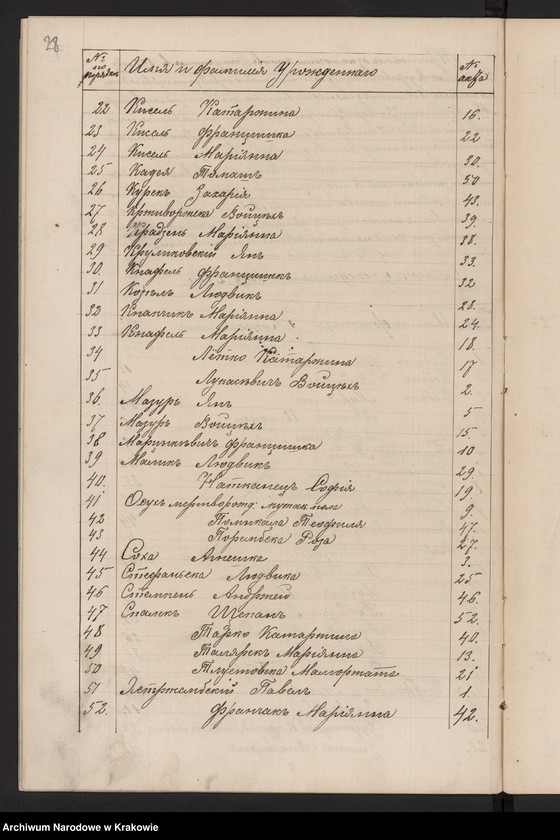 28
№ по порядк. Имя и фамилія Урожденнаго № акта
22 Кисель Катаржина 16.
23 Кисель Францишка 22
24 Кисель Маріянна 30.
25 Кадея Томашъ 50
26 Курекъ Захарія 43.
27 Крживоржека Войцѣхъ 39.
28 Маріянна 38.
29 Круликовскій Янъ 33.
30. Кнафель Францишекъ 32
31 Людвикъ 28.
32 Кнапчикъ Маріянна 24.
33 Кнафель Маріянна 18.
34 Лѣтко Катаржина 17
35 Лукасѣвичъ Войцѣхъ 2.
36. Мазуръ Янъ 5
37 Мазуръ Войцѣхъ 15.
38 Марцинкѣвичъ Францишка 10
39 Маликъ Людвикъ 29.
40. Наткапецъ Софія 19.
41 мертворожд: мужск. пола 9.
42 Помикала Теофиля 47.
43 Порембска Роза 27.
44 Соха Агнешка 3.
45 Стефаньска Людвика 25
46 Стемпень Анджей 46.
47 Спалекъ Щепанъ 52.
48 Катаржина 40.
49 Маріянна 13.
50 Тлустовска Малгоржата 21
51 Хетржембскій Павелъ 1.
52. Франчакъ Маріянна 42.
Archiwum Narodowe w Krakowie